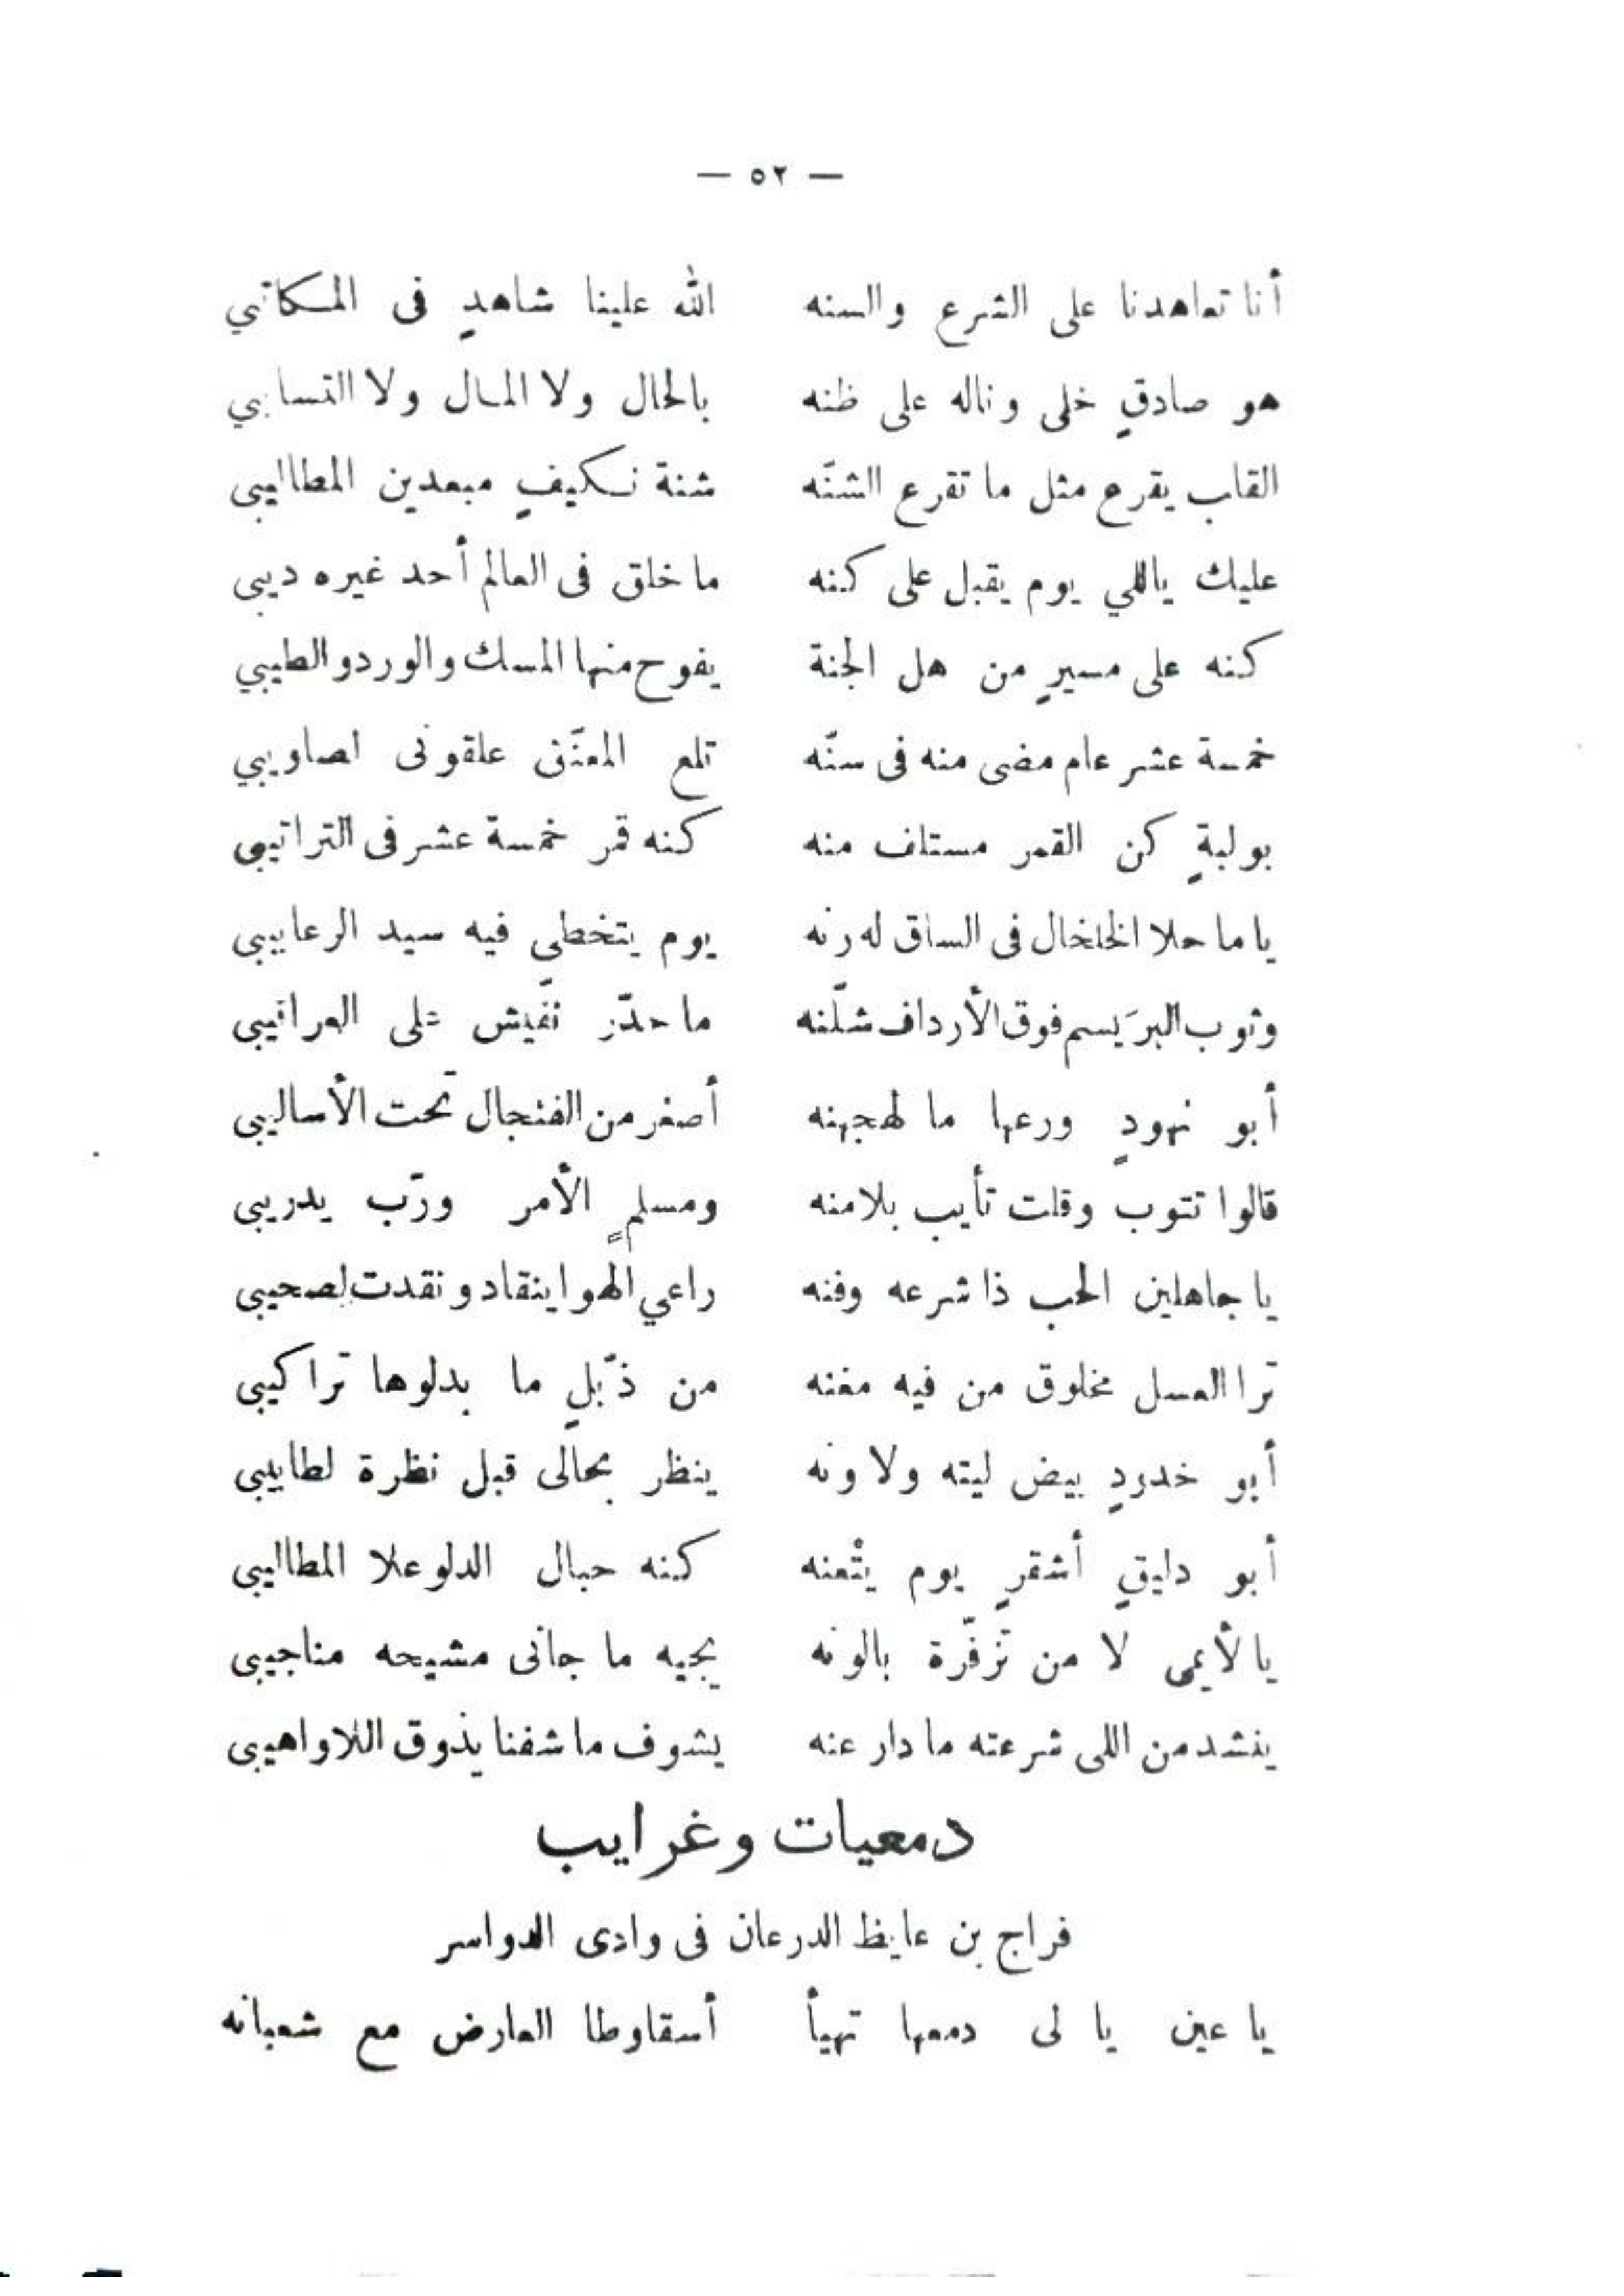 — ٥٢ —
أنا تعاهدنا على الشرع والسنه الله علينا شاهدٍ فى المكاتيبي
هو صادقٍ خلى وناله على ظنه بالحال ولا المال ولا التسابيبي
القلب يقرع مثل ما تقرع الشنّه شنة نكيفٍ مبعدين المطاليبى
عليك ياللي يوم يقبل على كنه ما خلق فى العالم أحد غيره ديبى
كنه على مسيرٍ من هل الجنة يفوح منها المسك والورد والطيبي
خمسة عشر عام مضى منه فى سنّه تلع المعنّق علقونى اصاويبي
بولبةٍ كن القمر مستلف منه كنه قمر خمسة عشر فى التراتيبى
يا ما حلا الخلخال فى الساق له رنه يوم يتخطى فيه سيد الرعابيبى
وثوب البرَيسم فوق الأرداف شلّنه ما حدّر نفّيش على العراقيبى
أبو نهودٍ ورعها ما لهجهنه أصغر من الفنجال تحت الأساليبى
قالوا تتوب وقلت تأيب بلامنه ومسلمٍ الأمر وربّ يدريبى
يا جاهلين الحب ذا شرعه وفنه راعي الهوا ينقاد ونقدت لصحيبى
ترا العسل مخلوق من فيه مغنه من ذبّلٍ ما بدلوها تراكيبى
أبو خدودٍ بيض ليته ولا ونه ينظر بحالى قبل نظرة لطابيبى
أبو دليقٍ أشقرٍ يوم يثْعنه كنه حبال الدلو علا المطاليبى
يا لأيمى لا من تزفّرة بالونه يجيه ما جانى مشيحه مناجيبى
ينشد من اللى شرعته ما دار عنه يشوف ما شفنا يذوق اللاواهيبى
دمعيات وغرايب
فراج بن عايظ الدرعان فى وادى الدواسر
يا عين يا لى دمعها تهيأ أسقاوطا العارض مع شعبانه